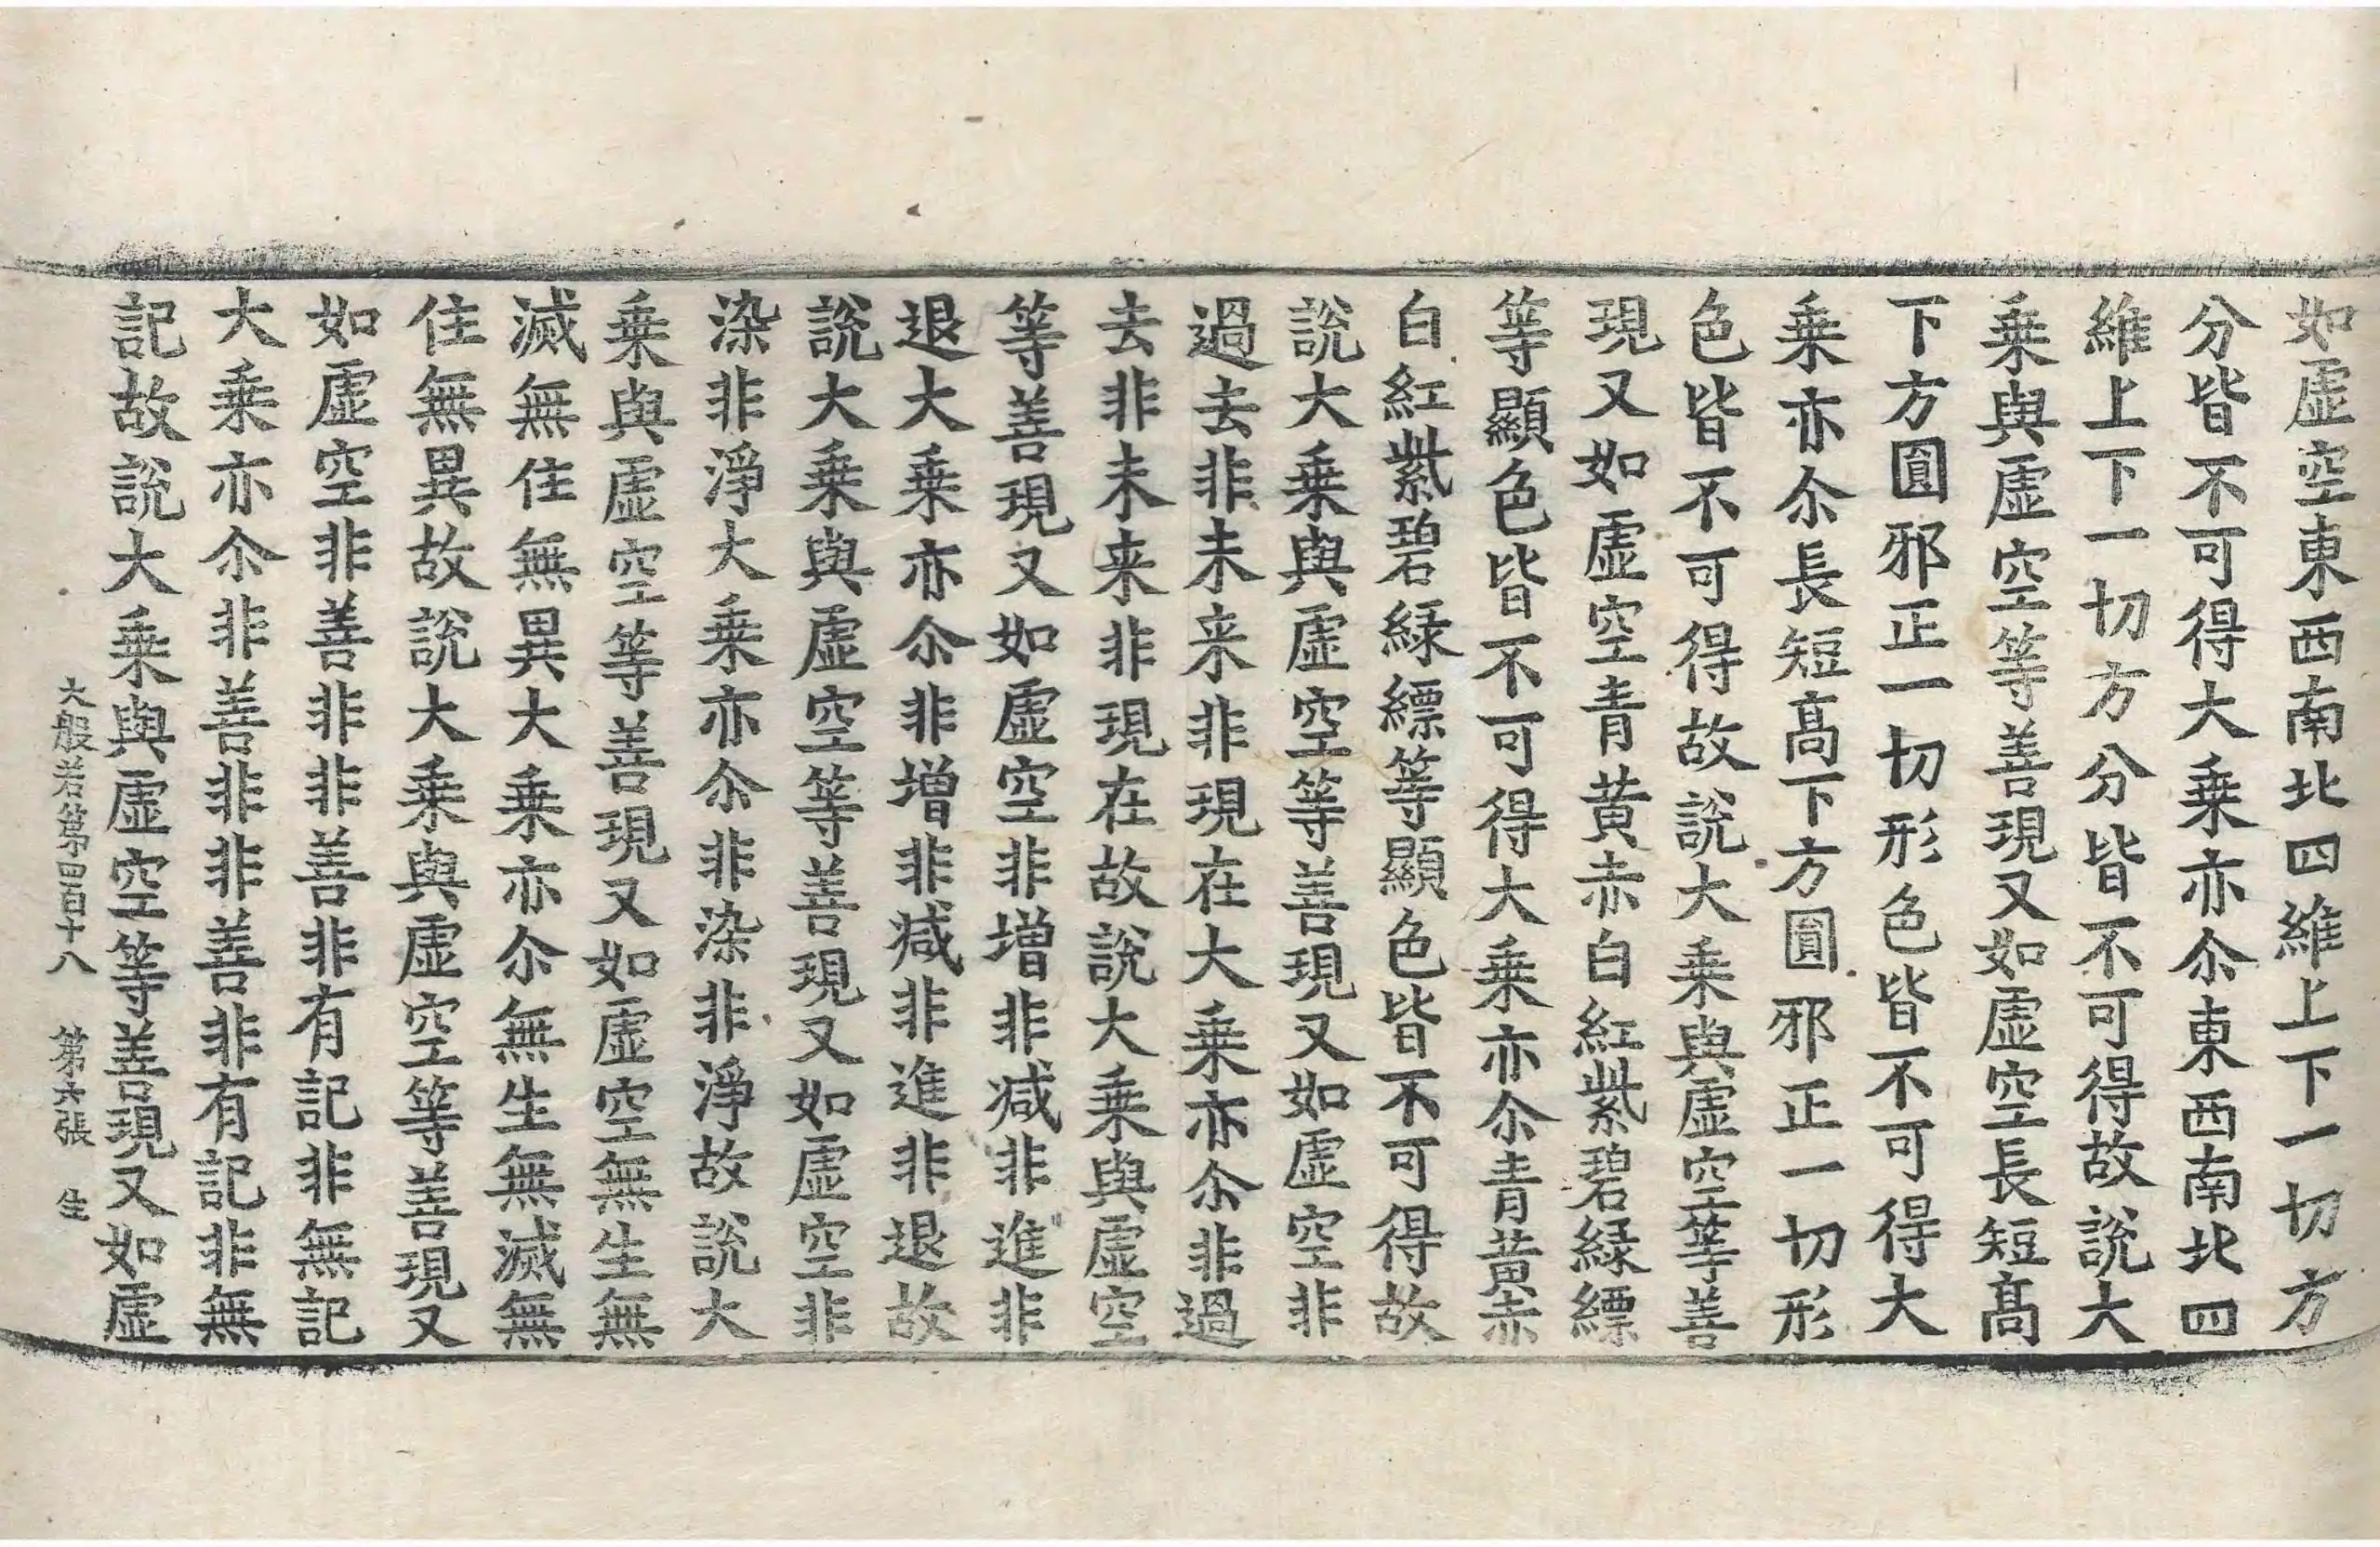 如虛空東西南北四維上下一切方
分皆不可得大乗亦尒東西南北四
維上下一切方分皆不可得故說大
乗與虛空等善現又如虛空長短髙
下方圓邪正一切形色皆不可得大
乗亦尒長短髙下方圓邪正一切形
色皆不可得故說大乗與虛空等善
現又如虛空青黃赤白紅紫碧緑縹
等顯色皆不可得大乗亦尒青黃赤
白紅紫碧緑縹等顯色皆不可得故
說大乗與虛空等善現又如虛空非
過去非未来非現在大乗亦尒非過
去非未来非現在故說大乗與虛空
等善現又如虛空非增非减非進非
退大乗亦尒非增非减非進非退故
說大乗與虛空等善現又如虛空非
染非淨大乗亦尒非染非淨故說大
乗與虛空等善現又如虛空無生無
滅無住無異大乗亦尒無生無滅無
住無異故說大乗與虛空等善現又
如虛空非善非非善非有記非無記
大乗亦尒非善非非善非有記非無
記故說大乗與虛空等善現又如虛
大般若第四百十八 第六張 生